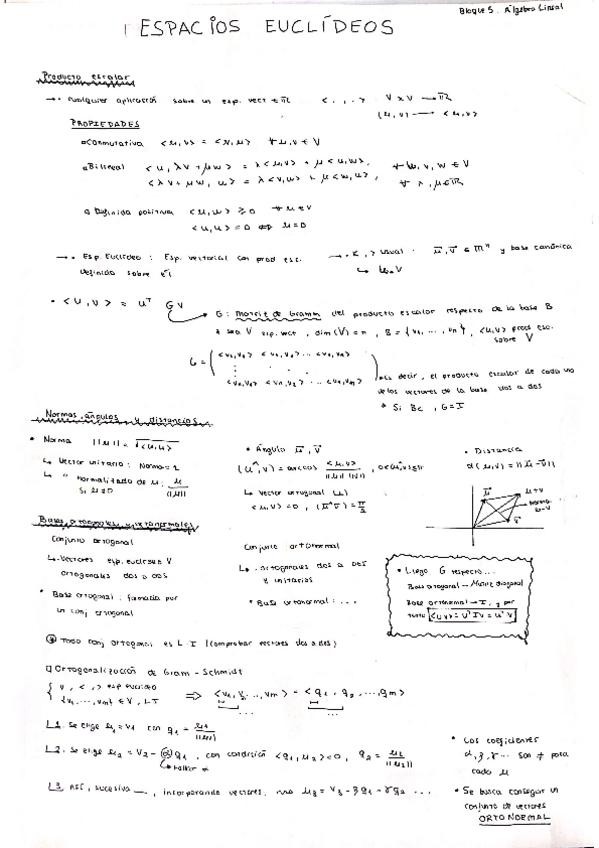 Bloque 5. Álgebra Lineal
ESPACIOS EUCLÍDEOS
Producto escalar
→ • Cualquier aplicación sobre un esp. vect. en ℝ <.,.> V x V → ℝ
(u,v) → <u,v>
PROPIEDADES
Conmutativa <u,v> = <v,u> ∀u,v ∈ V
Bilineal <u, λv + μw> = λ<u,v> + μ<u,w>, ∀u,v,w ∈ V
<λv + μw, u> = λ<v,u> + μ<w,u>, ∀ λ,μ ∈ ℝ
Definida positiva <u,u> ≥ 0 ∀u ∈ V
<u,u> = 0 ⇔ u = 0
→ • Esp. Euclídeo: Esp. vectorial con prod esc. definido sobre él
→ • <,> usual: y base canónica
↳ u·v
• <u,v> = uᵀ G v
G: Matriz de Gramm del producto escalar respecto de la base B
sea V esp. vect, dim(V) = n, B = {v₁, ..., vₙ}, <u,v> prod esc. sobre V
G =
Es decir, el producto escalar de cada uno
de los vectores de la base dos a dos
* Si Bc, G = I
Normas, ángulos y distancias
• Norma ||u|| = √<u,u>
↳ Vector unitario: Norma = 1
↳ " normalizado de u: u/||u||
Si u ≠ 0
• Ángulo u, v
(u^,v) = arccos <u,v>/||u|| ||v||
↳ Vector ortogonal (⊥)
<u,v> = 0, (u^v) = π/2
• Distancia
d(u,v) = ||u - v||
u
u+v
v
Bases ortogonales y ortonormales
Conjunto ortogonal
↳ Vectores esp. euclídeo V
ortogonales dos a dos
* Base ortogonal: formada por
un conj ortogonal
Conjunto ortonormal
↳ ortogonales dos a dos
y unitarios
* Base ortonormal: ...
• Luego G respecto...
Base ortogonal → Matriz diagonal
Base ortonormal → I, y por
tanto <u,v> = uᵀIv = uᵀv
Todo conj ortogonal es L.I (comprobar vectores dos a dos)
Ortogonalización de Gram-Schmidt
{ V, <,> esp euclídeo
{v₁, ..., vₘ} ∈ V, L.I
⇒ <v₁, v₂ ..., vₘ> = <q₁, q₂, ..., qₘ>
L1. Se elige u₁ = v₁ con q₁ = u₁/||u₁||
L2. Se elige u₂ = v₂ - α q₁, con condición <q₁, u₂> = 0, q₂ = u₂/||u₂||
↳ Hallar α
L3. Así, sucesiva—, incorporando vectores, u₃ = v₃ - βq₁ - γq₂ ...
* Los coeficientes
α, β, γ... son ≠ para
cada u
* Se busca conseguir un
conjunto de vectores
ORTONORMAL